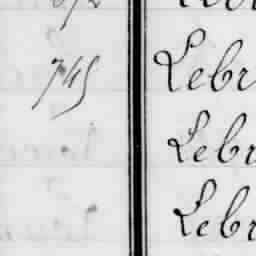 745 Lebr
Lebr
Lebr